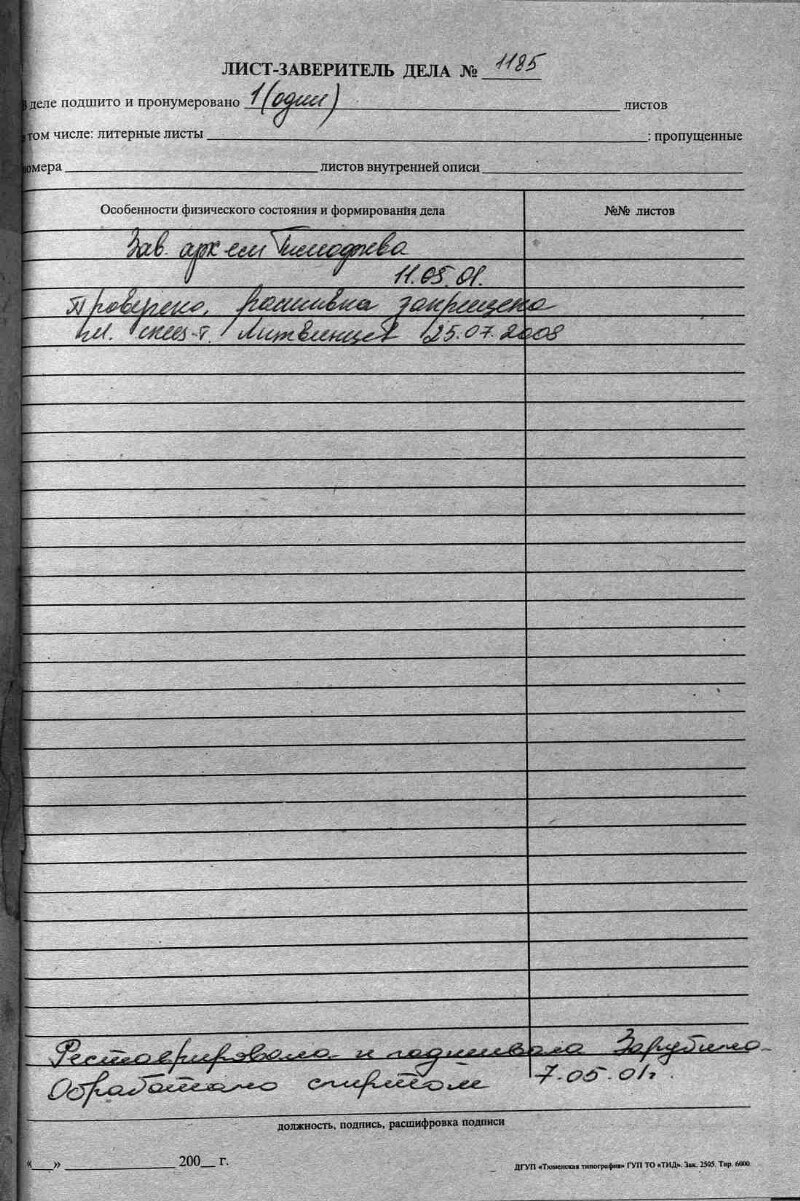 ЛИСТ-ЗАВЕРИТЕЛЬ ДЕЛА № 1185
в деле подшито и пронумеровано 1 (один) листов
том числе: литерные листы : пропущенные
номера листов внутренней описи
Особенности физического состояния и формирования дела №№ листов
Зав. арх-ем Тимофеева
11.05.01.
Проверено, расшивка запрещена
гл. спец-т Литвинцев 25.07.2008
Реставрировала и подшивала Зарубина
Обработано спиртом 7.05.01г.
должность, подпись, расшифровка подписи
«__» 200__ г.
ДГУП «Тюменская типография» ГУП ТО «ТИД». Зак. 2595. Тир. 6000